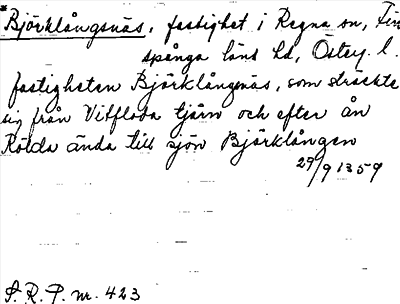 *Björklångsnäs, fastighet i Regna sn, Fin
spånga läns hd, Östeg. l.
fastigheten Björklångsnäs, som sträckte
sig från Vitfloda tjärn och efter ån
Rölda ända till sjön Björklången
29/9 1359
S. R. P. nr. 423